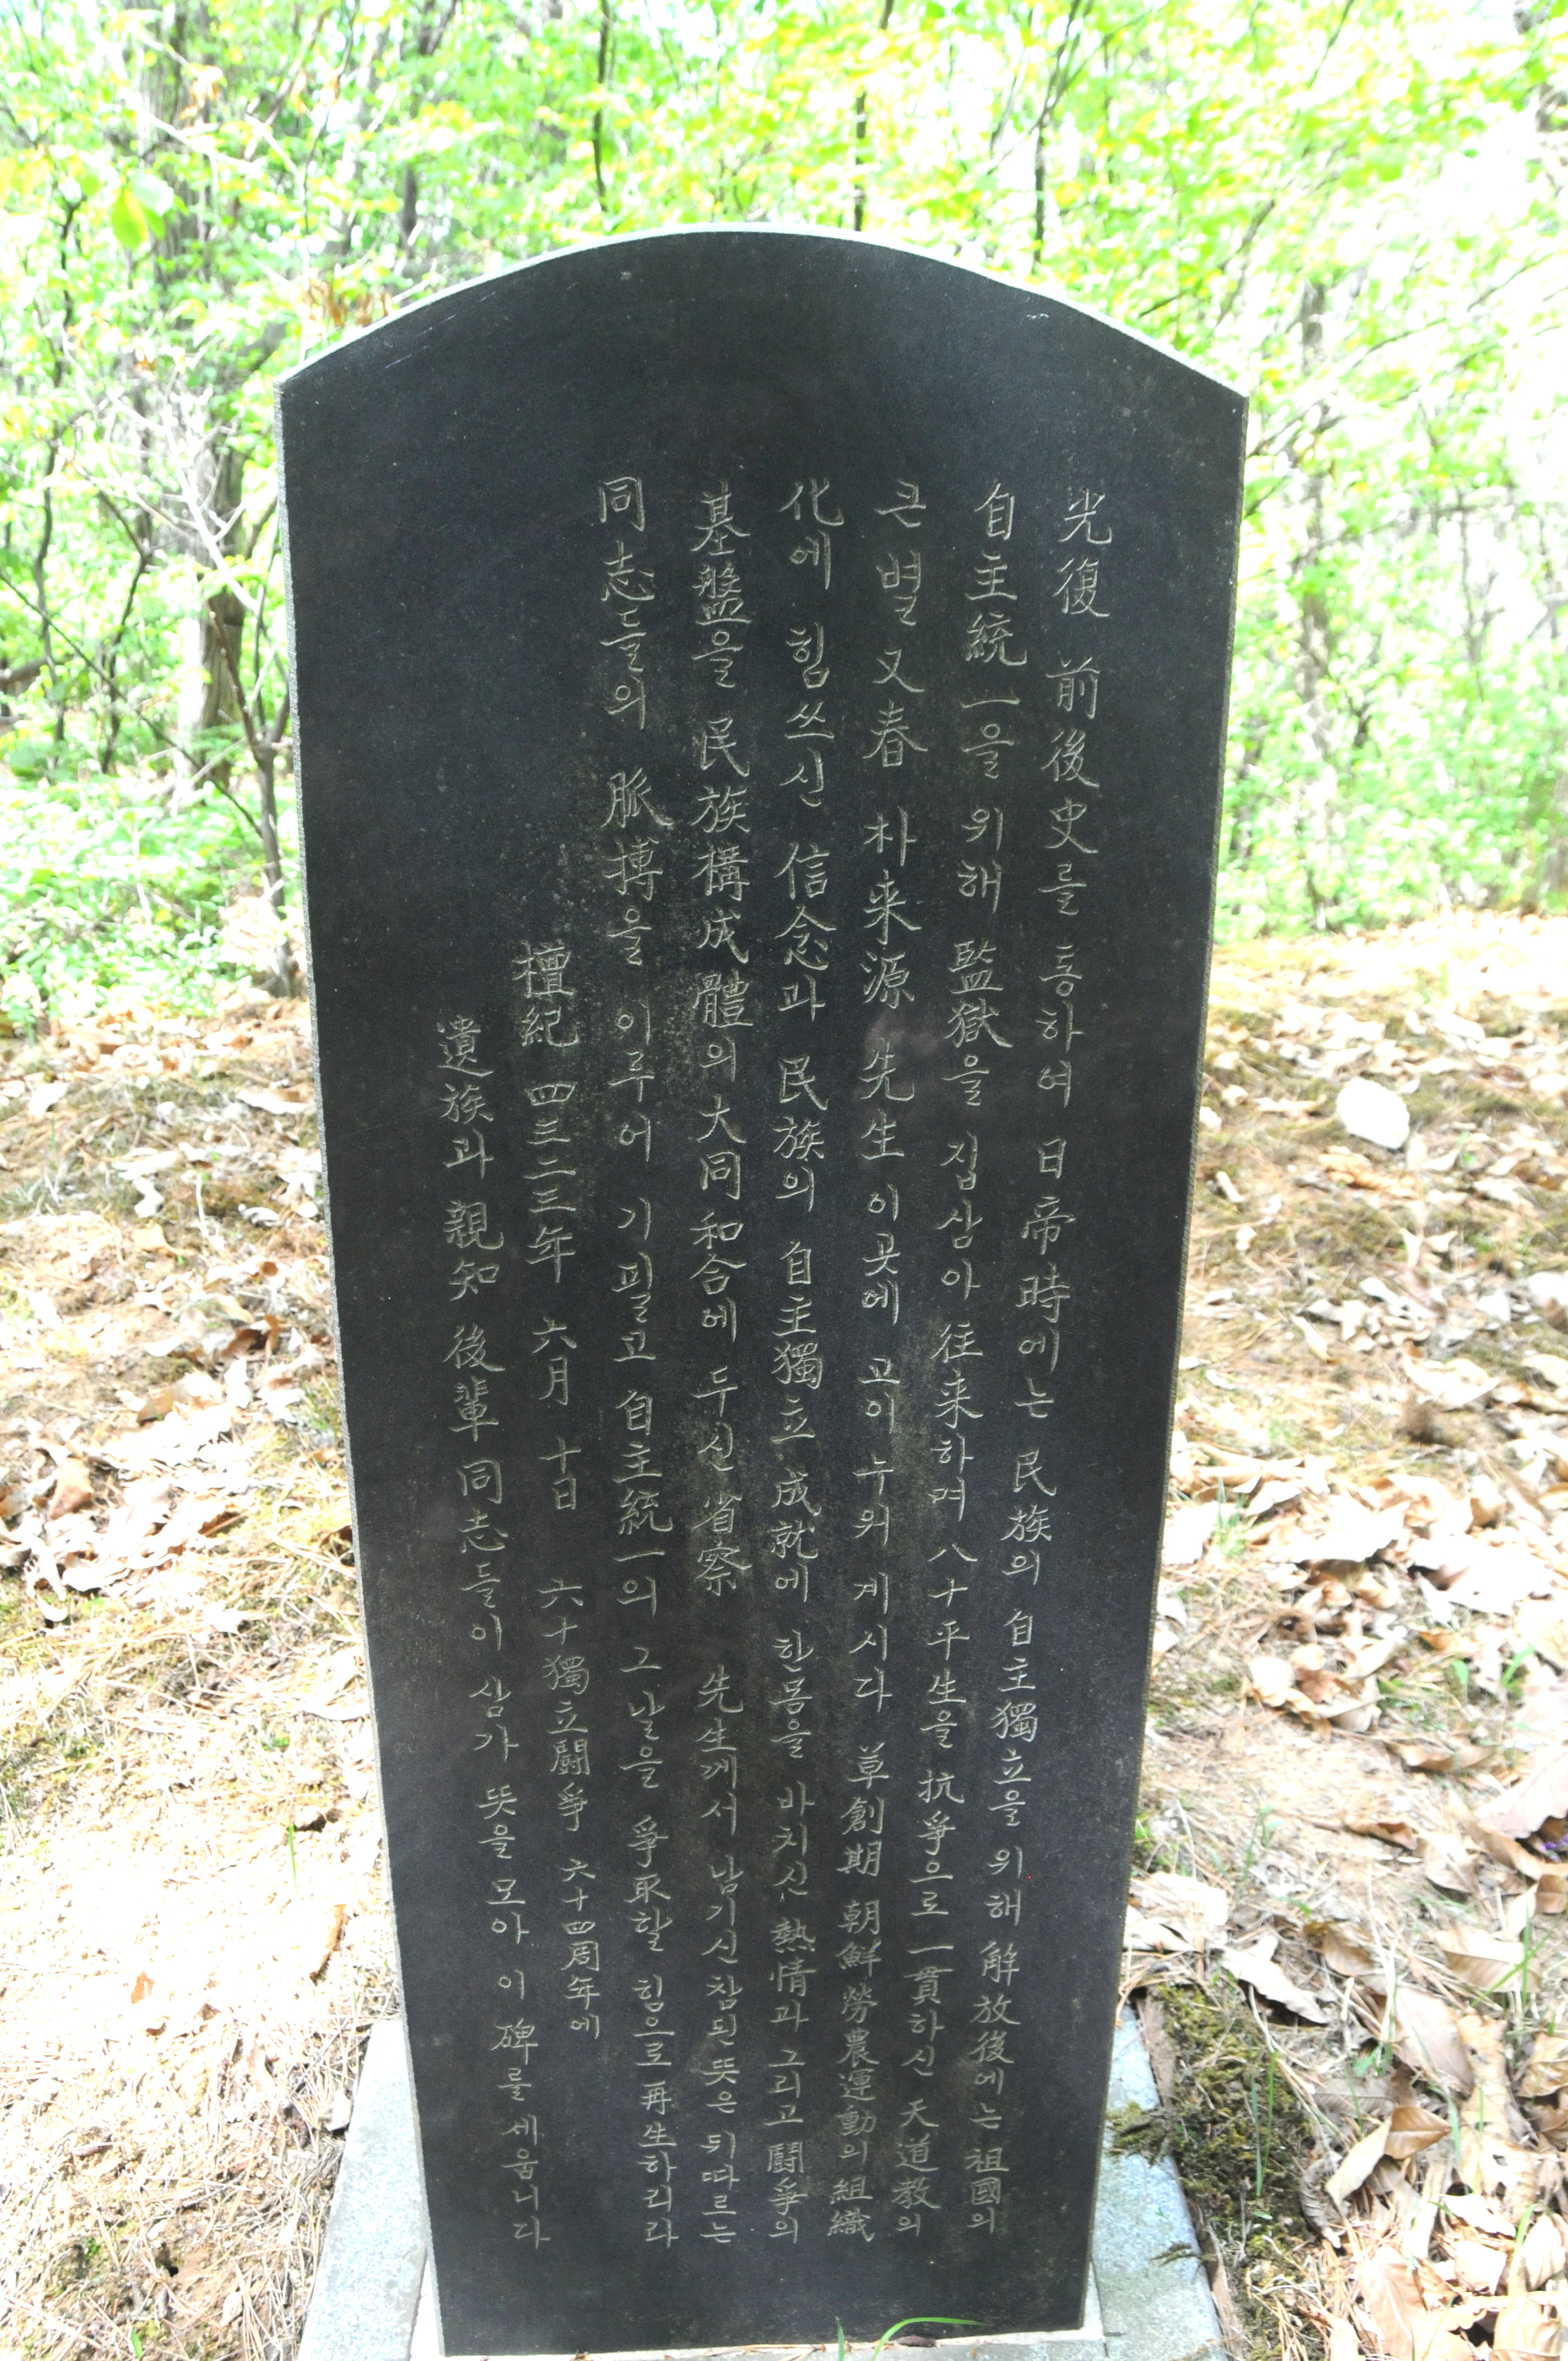 光復 前後史를 통하여 日帝時에는 民族의 自主獨立을 위해 解放後에는 祖國의
自主統一을 위해 監獄을 집삼아 往来하며 八十平生을 抗爭으로 一貫하신 天道教의
큰 별 又春 朴来源 先生 이곳에 고이 누워 계시다 草創期 朝鮮勞農運動의 組織
化에 힘쓰신 信念과 民族의 自主獨立 成就에 한몸을 바치신 熱情과 그리고 鬪爭의
基盤을 民族構成體의 大同和合에 두신 省察 先生께서 남기신 참된 뜻은 뒤따르는
同志들의 脈搏을 이루어 기필고 自主統一의 그날을 爭取할 힘으로 再生하리라
檀紀 四三二三年 六月 十日 六十獨立鬪爭 六十四周年에
遺族과 親知 後輩 同志들이 삼가 뜻을 모아 이 碑를 세웁니다